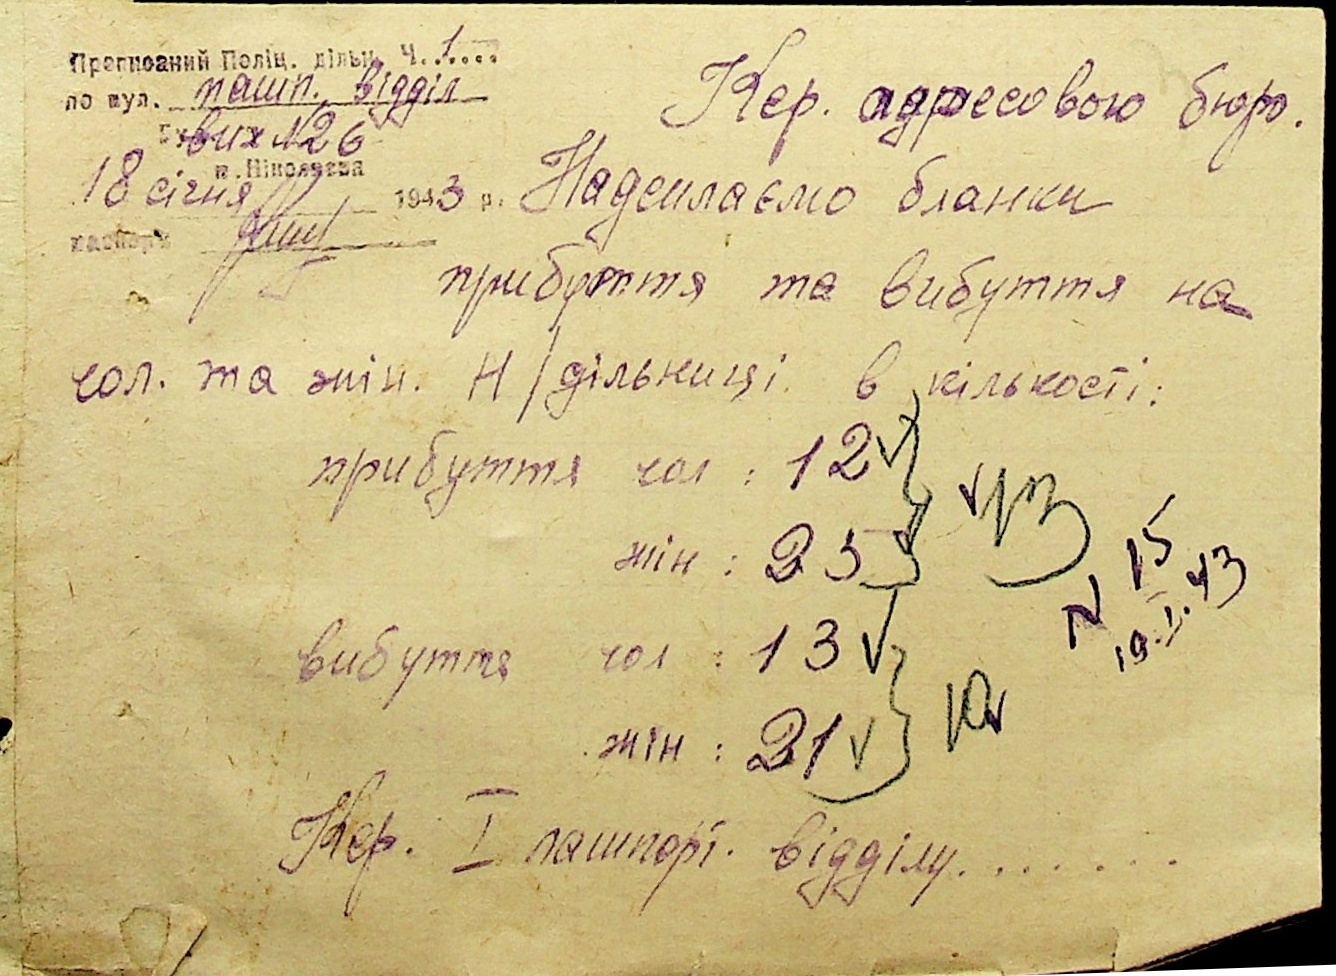 Прописаний Поліц. дільн. Ч. 1....
по вул. пашп. відділ
вих №26
м. Ніколаєва
18 січня 1943 р.
паспорт
Кер. адресовою бюро.
Надсилаємо бланки
прибуття та вибуття на
чол. та жін. Н/дільниці в кількості:
прибуття чол : 12
жін : 25
вибуття чол : 13
жін : 21
N 15
19.I.43
Кер. I пашпорт. відділу.......